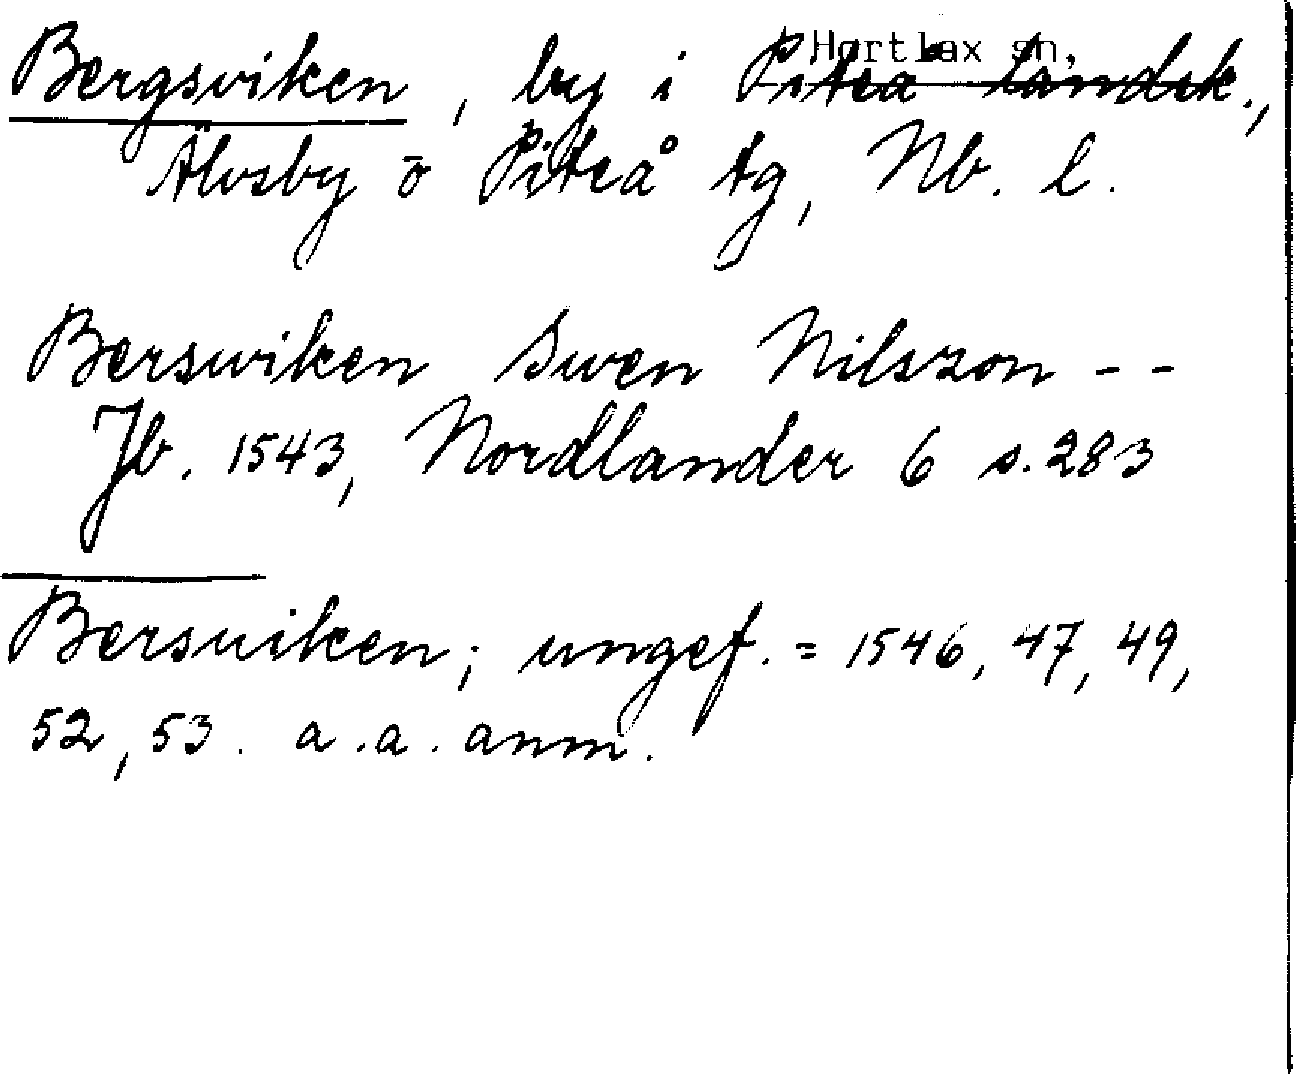 Hortlax sn,
Bergsviken, by i Piteå landsk.,
Älvsby o Piteå tg, Nb. l.
Berswiken Swen Nilszon --
Jb. 1543, Nordlander 6 s. 283
Bersuiken; ungef. = 1546, 47, 49,
52, 53. a.a. anm.